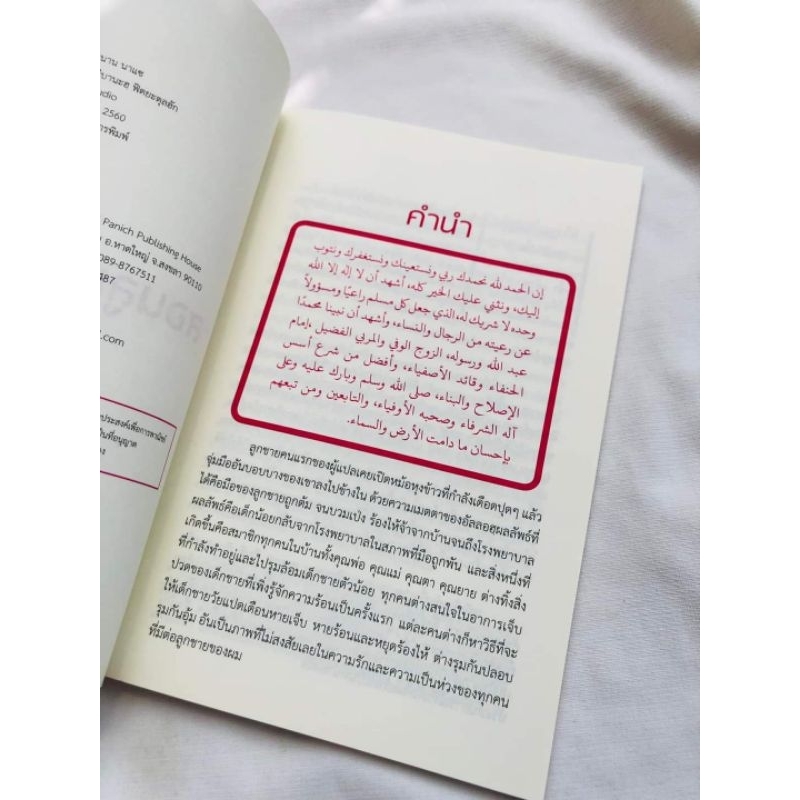 นาน นาแซ
ฟิตยะตุลฮัก
2560
Panich Publishing House
อ.หาดใหญ่ จ.สงขลา 90110
089-8767511
487
.com
ประสงค์เพื่อการพาณิชย์
คำนำ
إن الحمد لله نحمدك ربي ونستعينك ونستغفرك ونتوب
إليك، ونثني عليك الخير كله، أشهد أن لا إله إلا الله
وحده لا شريك له، الذي جعل كل مسلم راعيا ومسؤولاً
عن رعيته من الرجال والنساء، وأشهد أن نبينا محمدًا
عبد الله ورسوله، الزوج الوفي والمربي الفضيل ،إمام
الحنفاء وقائد الأصفياء، وأفضل من شرع أسس
الإصلاح والبناء، صلى الله وسلم وبارك عليه وعلى
آله الشرفاء وصحبه الأوفياء، والتابعين ومن تبعهم
بإحسان ما دامت الأرض والسماء.
ลูกชายคนแรกของผู้แปลเคยเปิดหม้อหุงข้าวที่กำลังเดือดปุดๆ แล้ว
จุ่มมืออันบอบบางของเขาลงไปข้างใน ด้วยความเมตตาของอัลลอฮฺผลลัพธ์ที่
ได้คือมือของลูกชายถูกต้ม จนบวมเป่ง ร้องไห้จ้าจากบ้านจนถึงโรงพยาบาล
ผลลัพธ์คือเด็กน้อยกลับจากโรงพยาบาลในสภาพที่มือถูกพัน และสิ่งหนึ่งที่
เกิดขึ้นคือสมาชิกทุกคนในบ้านทั้งคุณพ่อ คุณแม่ คุณตา คุณยาย ต่างทิ้งสิ่ง
ที่กำลังทำอยู่และไปรุมล้อมเด็กชายตัวน้อย ทุกคนต่างสนใจในอาการเจ็บ
ปวดของเด็กชายที่เพิ่งรู้จักความร้อนเป็นครั้งแรก แต่ละคนต่างก็หาวิธีที่จะ
ให้เด็กชายวัยแปดเดือนหายเจ็บ หายร้อนและหยุดร้องไห้ ต่างรุมกันปลอบ
รุมกันอุ้ม อันเป็นภาพที่ไม่สงสัยเลยในความรักและความเป็นห่วงของทุกคน
ที่มีต่อลูกชายของผม